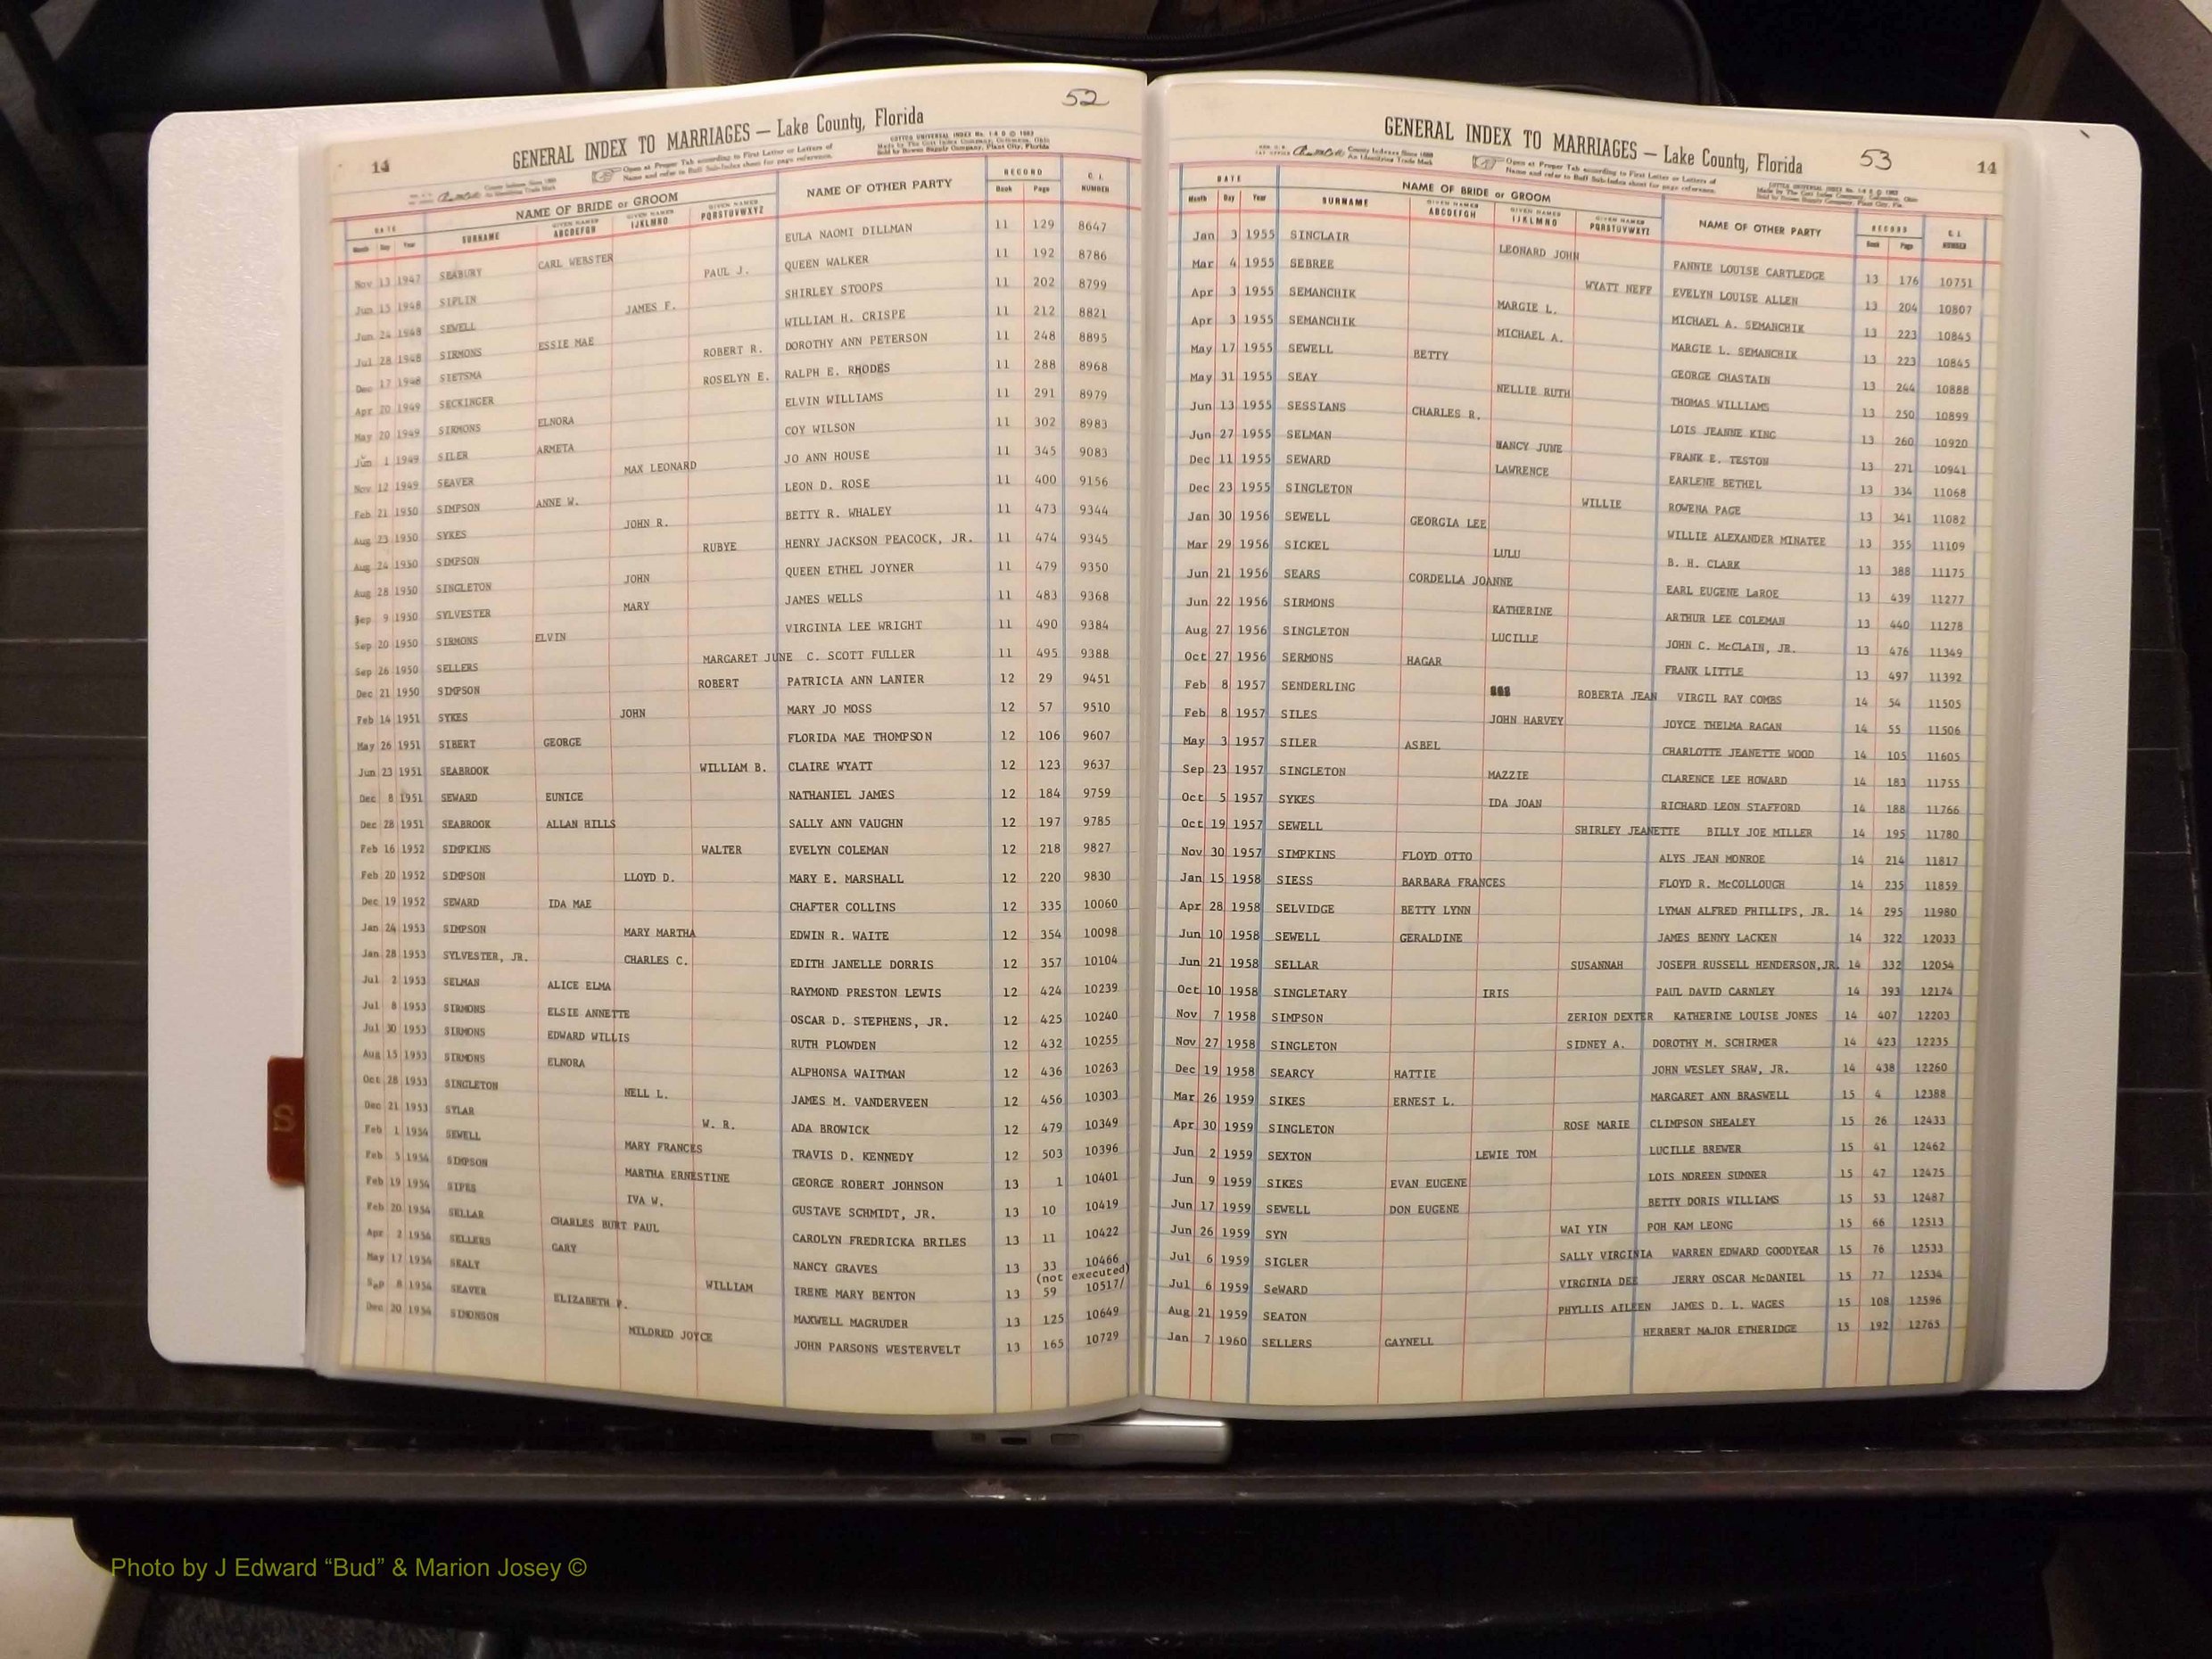 52
14
GENERAL INDEX TO MARRIAGES — Lake County, Florida
Open at Proper Tab according to First Letter or Letters of
Name and refer to Buff Sub-Index sheet for page reference.
DATE NAME OF BRIDE or GROOM NAME OF OTHER PARTY RECORD C. I. NUMBER
Month Day Year SURNAME GIVEN NAMES ABCDEFGH GIVEN NAMES IJKLMNO GIVEN NAMES PQRSTUVWXYZ Book Page
Nov 13 1947 SEABURY CARL WEBSTER EULA NAOMI DILLMAN 11 129 8647
Jun 15 1948 SIPLIN PAUL J. QUEEN WALKER 11 192 8786
Jun 24 1948 SEWELL JAMES F. SHIRLEY STOOPS 11 202 8799
Jul 28 1948 SIRMONS ESSIE MAE WILLIAM H. CRISPE 11 212 8821
Dec 17 1948 SIETSMA ROBERT R. DOROTHY ANN PETERSON 11 248 8895
Apr 20 1949 SECKINGER ROSELYN E. RALPH E. RHODES 11 288 8968
May 20 1949 SIRMONS ELNORA ELVIN WILLIAMS 11 291 8979
Jun 1 1949 SILER ARMETA COY WILSON 11 302 8983
Nov 12 1949 SEAVER MAX LEONARD JO ANN HOUSE 11 345 9083
Feb 21 1950 SIMPSON ANNE W. LEON D. ROSE 11 400 9156
Aug 23 1950 SYKES JOHN R. BETTY R. WHALEY 11 473 9344
Aug 24 1950 SIMPSON RUBYE HENRY JACKSON PEACOCK, JR. 11 474 9345
Aug 28 1950 SINGLETON JOHN QUEEN ETHEL JOYNER 11 479 9350
Sep 9 1950 SYLVESTER MARY JAMES WELLS 11 483 9368
Sep 20 1950 SIRMONS ELVIN VIRGINIA LEE WRIGHT 11 490 9384
Sep 26 1950 SELLERS MARGARET JUNE C. SCOTT FULLER 11 495 9388
Dec 21 1950 SIMPSON ROBERT PATRICIA ANN LANIER 12 29 9451
Feb 14 1951 SYKES JOHN MARY JO MOSS 12 57 9510
May 26 1951 SIBERT GEORGE FLORIDA MAE THOMPSON 12 106 9607
Jun 23 1951 SEABROOK WILLIAM B. CLAIRE WYATT 12 123 9637
Dec 8 1951 SEWARD EUNICE NATHANIEL JAMES 12 184 9759
Dec 28 1951 SEABROOK ALLAN HILLS SALLY ANN VAUGHN 12 197 9785
Feb 16 1952 SIMPKINS WALTER EVELYN COLEMAN 12 218 9827
Feb 20 1952 SIMPSON LLOYD D. MARY E. MARSHALL 12 220 9830
Dec 19 1952 SEWARD IDA MAE CHAFTER COLLINS 12 335 10060
Jan 24 1953 SIMPSON MARY MARTHA EDWIN R. WAITE 12 354 10098
Jan 28 1953 SYLVESTER, JR. CHARLES C. EDITH JANELLE DORRIS 12 357 10104
Jul 2 1953 SELMAN ALICE ELMA RAYMOND PRESTON LEWIS 12 424 10239
Jul 8 1953 SIRMONS ELSIE ANNETTE OSCAR D. STEPHENS, JR. 12 425 10240
Jul 30 1953 SIRMONS EDWARD WILLIS RUTH PLOWDEN 12 432 10255
Aug 15 1953 SIRMONS ELNORA ALPHONSA WAITMAN 12 436 10263
Oct 28 1953 SINGLETON NELL L. JAMES M. VANDERVEEN 12 456 10303
Dec 21 1953 SYLAR W. R. ADA BROWICK 12 479 10349
Feb 1 1954 SEWELL MARY FRANCES TRAVIS D. KENNEDY 12 503 10396
Feb 5 1954 SIMPSON MARTHA ERNESTINE GEORGE ROBERT JOHNSON 13 1 10401
Feb 19 1954 SIPES IVA W. GUSTAVE SCHMIDT, JR. 13 10 10419
Feb 20 1954 SELLAR CHARLES BURT PAUL CAROLYN FREDRICKA BRILES 13 11 10422
Apr 2 1954 SELLERS GARY NANCY GRAVES 13 33 10466
(not executed)
May 17 1954 SEALY WILLIAM IRENE MARY BENTON 13 59 10517/
Sep 8 1954 SEAVER ELIZABETH P. MAXWELL MAGRUDER 13 125 10649
Dec 20 1954 SIMONSON MILDRED JOYCE JOHN PARSONS WESTERVELT 13 165 10729
53
14
GENERAL INDEX TO MARRIAGES — Lake County, Florida
Open at Proper Tab according to First Letter or Letters of
Name and refer to Buff Sub-Index sheet for page reference.
DATE NAME OF BRIDE or GROOM NAME OF OTHER PARTY RECORD C. I. NUMBER
Month Day Year SURNAME GIVEN NAMES ABCDEFGH GIVEN NAMES IJKLMNO GIVEN NAMES PQRSTUVWXYZ Book Page
Jan 3 1955 SINCLAIR LEONARD JOHN FANNIE LOUISE CARTLEDGE 13 176 10751
Mar 4 1955 SEBREE WYATT NEFF EVELYN LOUISE ALLEN 13 204 10807
Apr 3 1955 SEMANCHIK MARGIE L. MICHAEL A. SEMANCHIK 13 223 10845
Apr 3 1955 SEMANCHIK MICHAEL A. MARGIE L. SEMANCHIK 13 223 10845
May 17 1955 SEWELL BETTY GEORGE CHASTAIN 13 244 10888
May 31 1955 SEAY NELLIE RUTH THOMAS WILLIAMS 13 250 10899
Jun 13 1955 SESSIANS CHARLES R. LOIS JEANNE KING 13 260 10920
Jun 27 1955 SELMAN NANCY JUNE FRANK E. TESTON 13 271 10941
Dec 11 1955 SEWARD LAWRENCE EARLENE BETHEL 13 334 11068
Dec 23 1955 SINGLETON WILLIE ROWENA PAGE 13 341 11082
Jan 30 1956 SEWELL GEORGIA LEE WILLIE ALEXANDER MINATEE 13 355 11109
Mar 29 1956 SICKEL LULU B. H. CLARK 13 388 11175
Jun 21 1956 SEARS CORDELLA JOANNE EARL EUGENE LaROE 13 439 11277
Jun 22 1956 SIRMONS KATHERINE ARTHUR LEE COLEMAN 13 440 11278
Aug 27 1956 SINGLETON LUCILLE JOHN C. McCLAIN, JR. 13 476 11349
Oct 27 1956 SERMONS HAGAR FRANK LITTLE 13 497 11392
Feb 8 1957 SENDERLING ROBERTA JEAN VIRGIL RAY COMBS 14 54 11505
Feb 8 1957 SILES JOHN HARVEY JOYCE THELMA RAGAN 14 55 11506
May 3 1957 SILER ASBEL CHARLOTTE JEANETTE WOOD 14 105 11605
Sep 23 1957 SINGLETON MAZZIE CLARENCE LEE HOWARD 14 183 11755
Oct 5 1957 SYKES IDA JOAN RICHARD LEON STAFFORD 14 188 11766
Oct 19 1957 SEWELL SHIRLEY JEANETTE BILLY JOE MILLER 14 195 11780
Nov 30 1957 SIMPKINS FLOYD OTTO ALYS JEAN MONROE 14 214 11817
Jan 15 1958 SIESS BARBARA FRANCES FLOYD R. McCOLLOUGH 14 235 11859
Apr 28 1958 SELVIDGE BETTY LYNN LYMAN ALFRED PHILLIPS, JR. 14 295 11980
Jun 10 1958 SEWELL GERALDINE JAMES BENNY LACKEN 14 322 12033
Jun 21 1958 SELLAR SUSANNAH JOSEPH RUSSELL HENDERSON,JR. 14 332 12054
Oct 10 1958 SINGLETARY IRIS PAUL DAVID CARNLEY 14 393 12174
Nov 7 1958 SIMPSON ZERION DEXTER KATHERINE LOUISE JONES 14 407 12203
Nov 27 1958 SINGLETON SIDNEY A. DOROTHY M. SCHIRMER 14 423 12235
Dec 19 1958 SEARCY HATTIE JOHN WESLEY SHAW, JR. 14 438 12260
Mar 26 1959 SIKES ERNEST L. MARGARET ANN BRASWELL 15 4 12388
Apr 30 1959 SINGLETON ROSE MARIE CLIMPSON SHEALEY 15 26 12433
Jun 2 1959 SEXTON LEWIE TOM LUCILLE BREWER 15 41 12462
Jun 9 1959 SIKES EVAN EUGENE LOIS NOREEN SUMNER 15 47 12475
Jun 17 1959 SEWELL DON EUGENE BETTY DORIS WILLIAMS 15 53 12487
Jun 26 1959 SYN WAI YIN POH KAM LEONG 15 66 12513
Jul 6 1959 SIGLER SALLY VIRGINIA WARREN EDWARD GOODYEAR 15 76 12533
Jul 6 1959 SeWARD VIRGINIA DEE JERRY OSCAR McDANIEL 15 77 12534
Aug 21 1959 SEATON PHYLLIS AILEEN JAMES D. L. WAGES 15 108 12596
Jan 7 1960 SELLERS GAYNELL HERBERT MAJOR ETHERIDGE 15 192 12765
S
Photo by J Edward “Bud” & Marion Josey ©